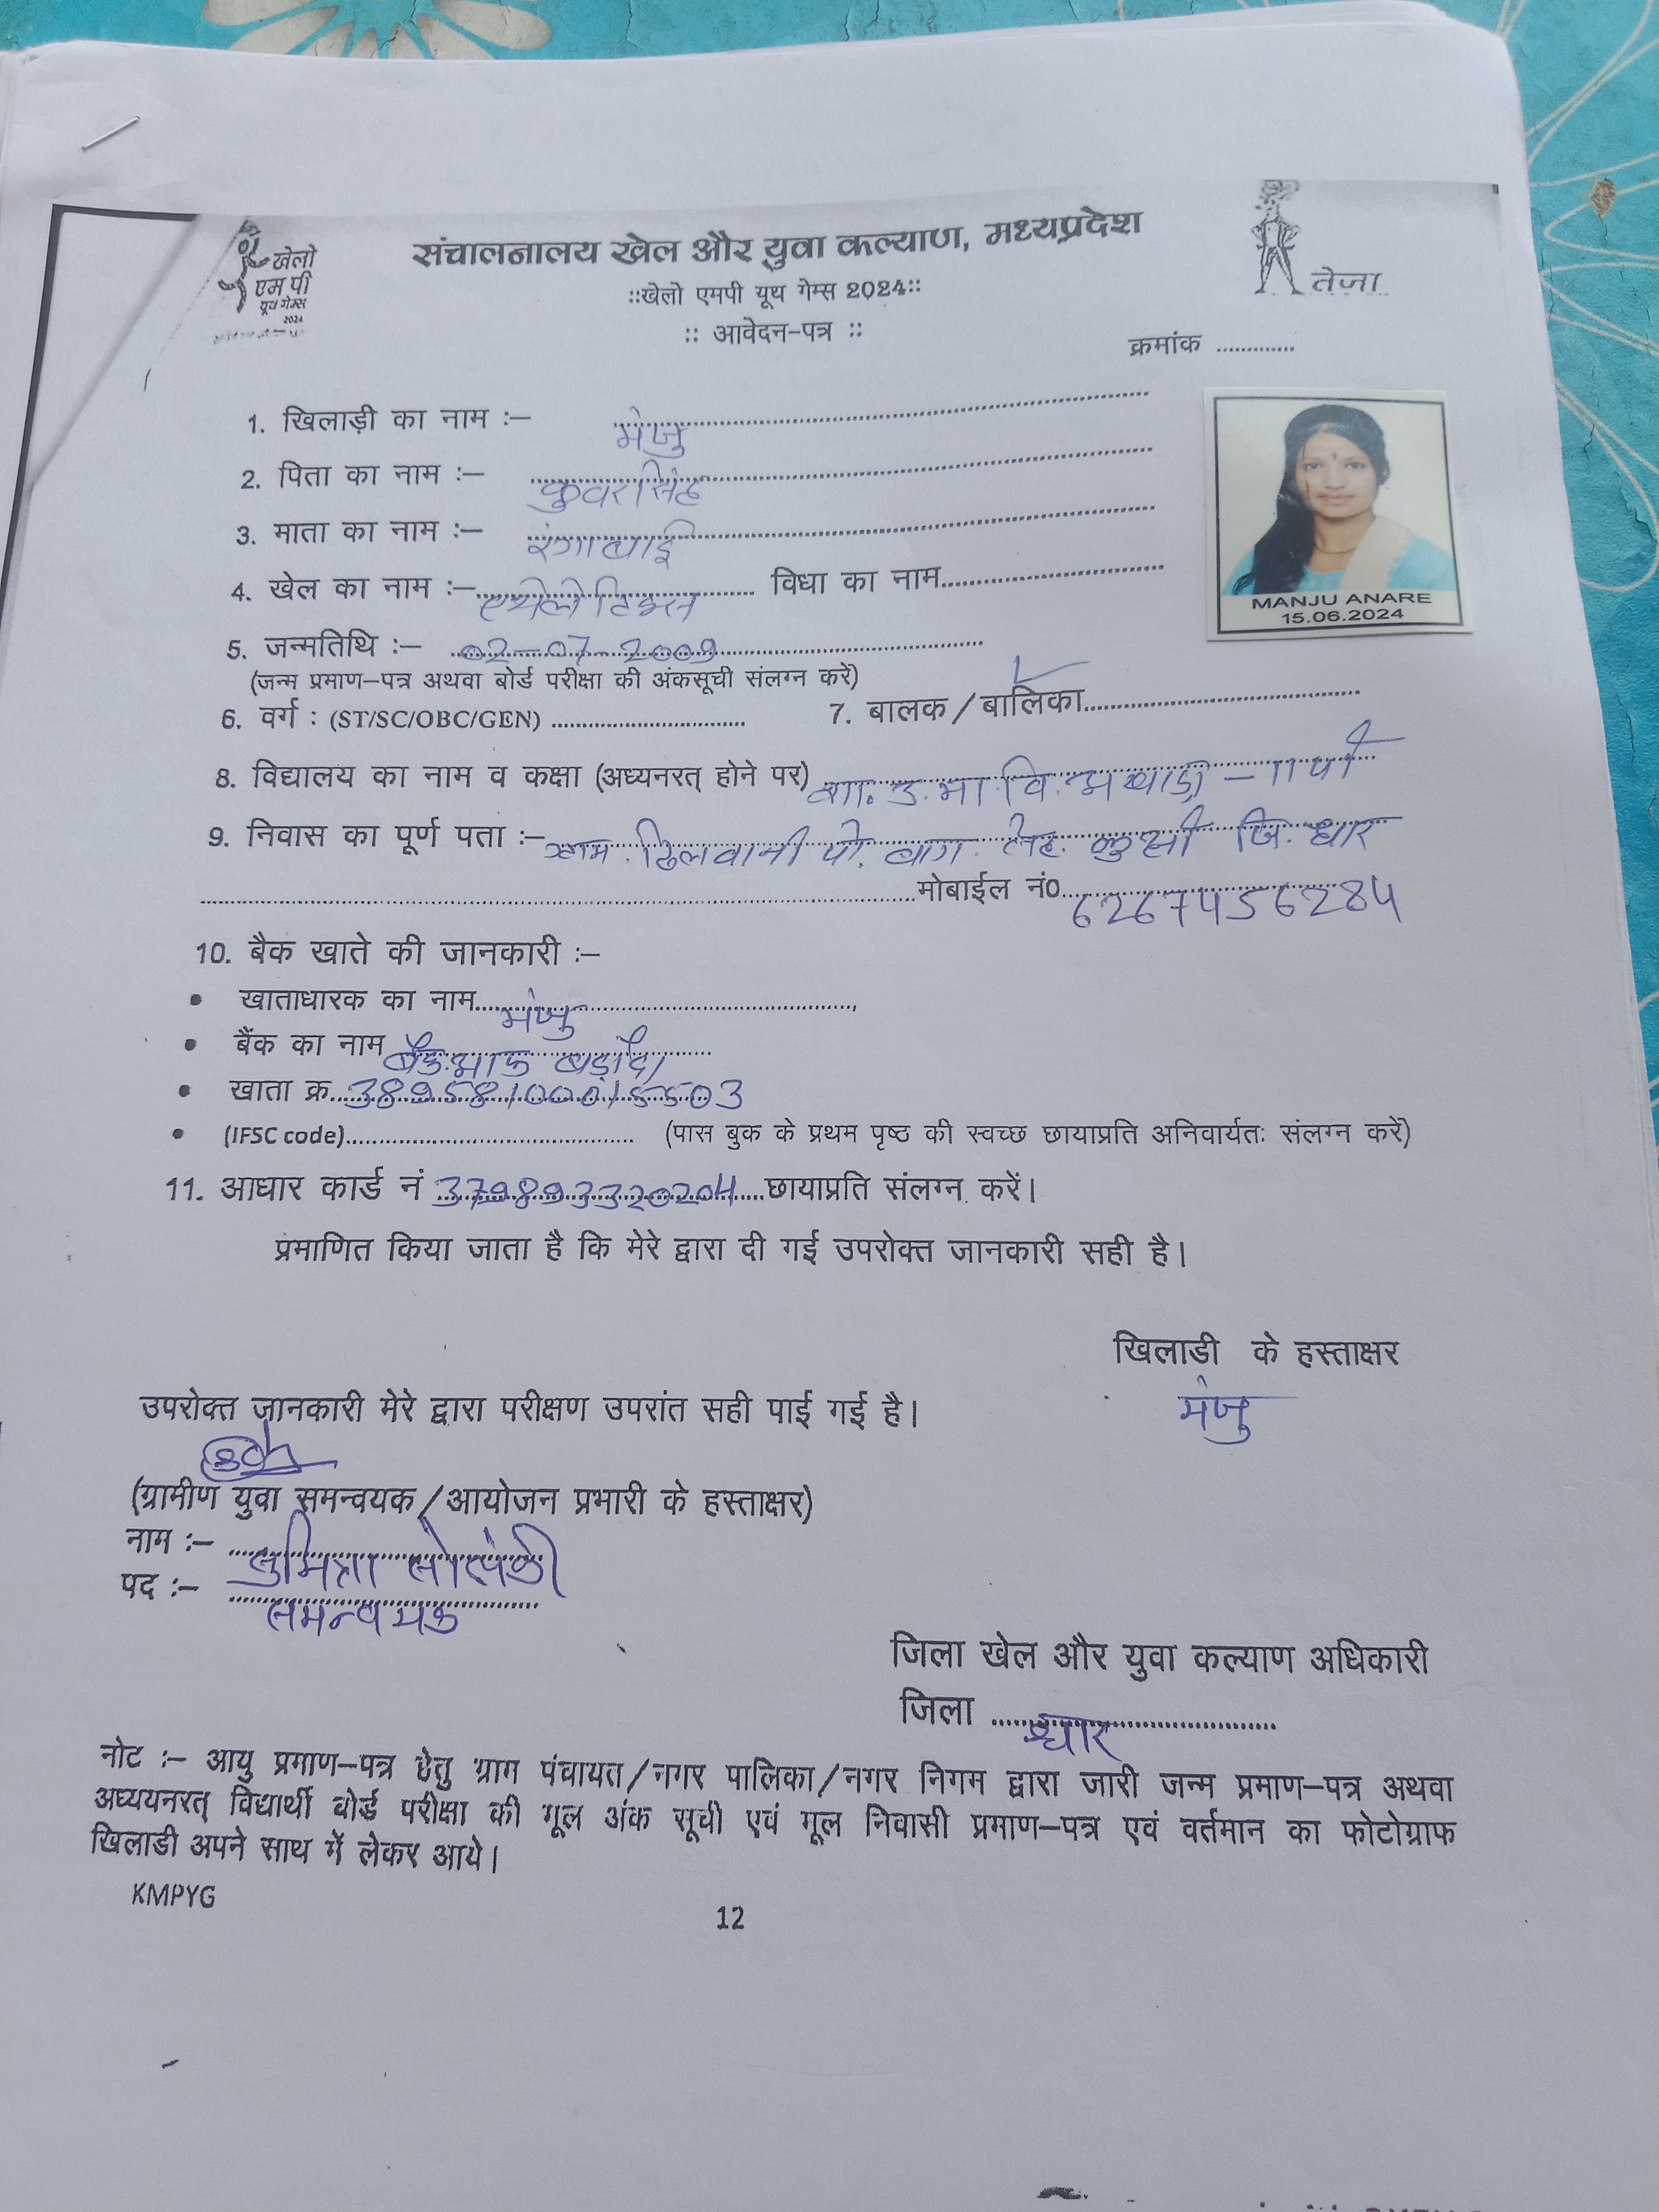 खेलो
एम पी
यूथ गेम्स
2024
संचालनालय खेल और युवा कल्याण, मध्यप्रदेश
::खेलो एमपी यूथ गेम्स 2024::
:: आवेदन-पत्र ::
तेजा
क्रमांक .............
1. खिलाड़ी का नाम :– मंजु
2. पिता का नाम :– कुवरसिंह
3. माता का नाम :– रंगाबाई
4. खेल का नाम :– एथेलेटिक्स विधा का नाम
MANJU ANARE
15.06.2024
5. जन्मतिथि :– 02-07-2009
(जन्म प्रमाण–पत्र अथवा बोर्ड परीक्षा की अंकसूची संलग्न करें)
6. वर्ग : (ST/SC/OBC/GEN) 7. बालक/बालिका
8. विद्यालय का नाम व कक्षा (अध्यनरत् होने पर) शा. उ. मा. वि. - 11 वी
9. निवास का पूर्ण पता :– ग्राम. पो. बाग तेह. कुक्षी जि. धार
मोबाईल नं0 6267456284
10. बैक खाते की जानकारी :–
• खाताधारक का नाम मंजु
• बैंक का नाम बैंक आफ बड़ौदा
• खाता क्र. 38958100015503
• (IFSC code) (पास बुक के प्रथम पृष्ठ की स्वच्छ छायाप्रति अनिवार्यतः संलग्न करें)
11. आधार कार्ड नं 379893320204 छायाप्रति संलग्न करें।
प्रमाणित किया जाता है कि मेरे द्वारा दी गई उपरोक्त जानकारी सही है।
खिलाडी के हस्ताक्षर
मंजु
उपरोक्त जानकारी मेरे द्वारा परीक्षण उपरांत सही पाई गई है।
(ग्रामीण युवा समन्वयक/आयोजन प्रभारी के हस्ताक्षर)
नाम :– सुमित्रा सोलंकी
पद :– समन्वयक
जिला खेल और युवा कल्याण अधिकारी
जिला धार
नोट :– आयु प्रमाण–पत्र हेतु ग्राम पंचायत/नगर पालिका/नगर निगम द्वारा जारी जन्म प्रमाण–पत्र अथवा
अध्ययनरत् विद्यार्थी बोर्ड परीक्षा की मूल अंक सूची एवं मूल निवासी प्रमाण–पत्र एवं वर्तमान का फोटोग्राफ
खिलाडी अपने साथ में लेकर आये।
KMPYG
12